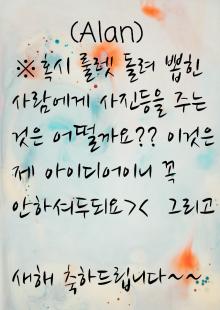 (Alan)
※혹시 룰렛 돌려 뽑힌
사람에게 사진등을 주는
것은 어떨까요?? 이것은
제 아이디어이니 꼭
안하셔두되요>< 그리고
새해 축하드립니다~~